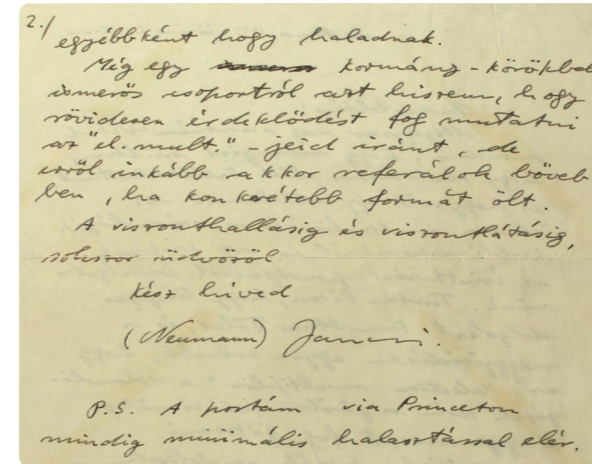 2./
egyébbként hogy haladnak.
Még egy kormány-körökbel
ismerős csoportról azt hiszem, hogy
rövidesen érdeklődést fog mutatni
az "el. mult."-jeid iránt, de
erről inkább akkor referálok bőveb
ben, ha konkrétebb formát ölt.
A viszonthallásig és viszontlátásig,
sokszor üdvözöl
kész híved
(Neumann) Jancsi.
P.S. A postám via Princeton
mindig minimális halasztással elér.